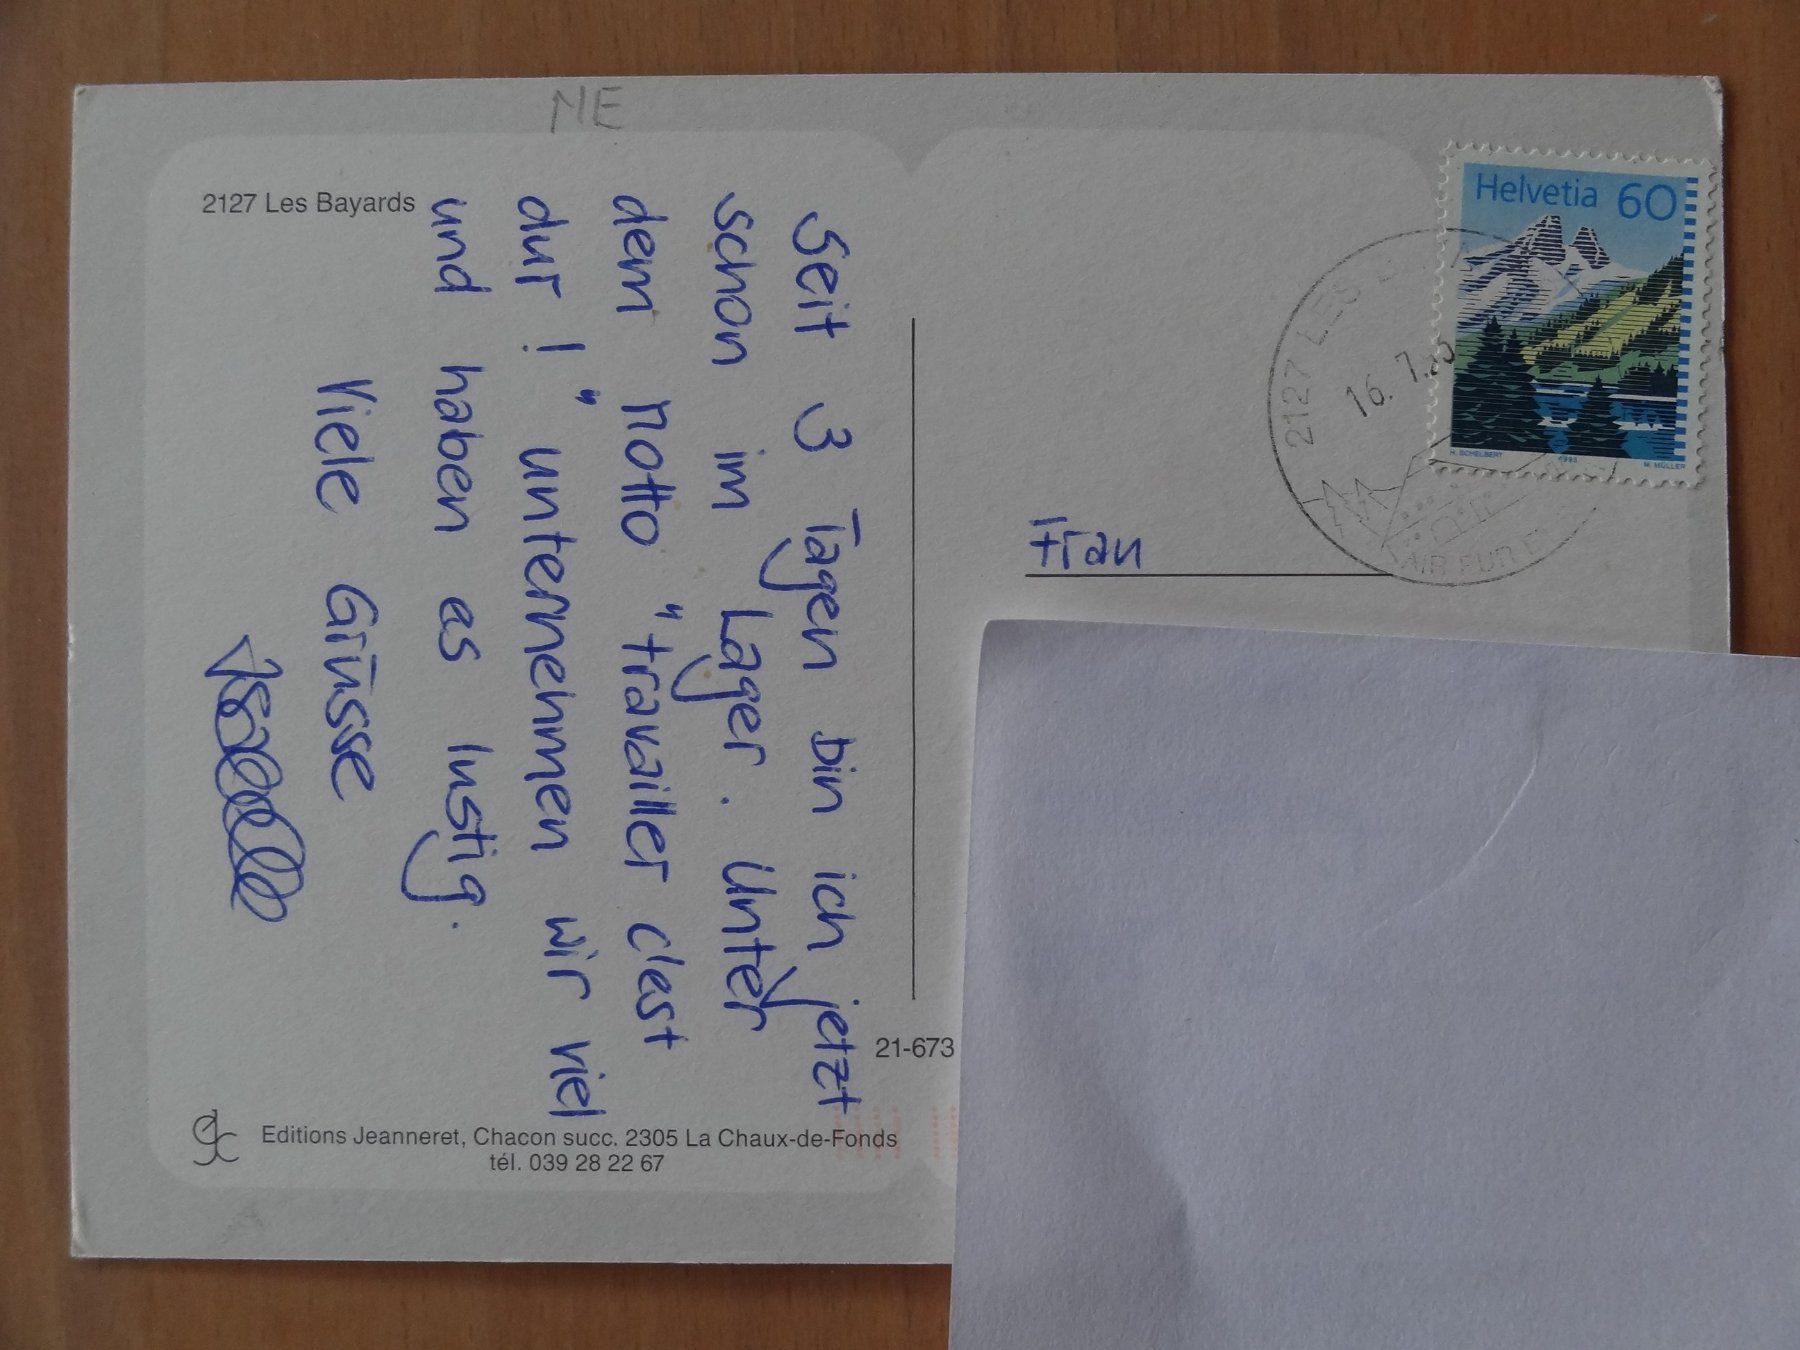 NE
2127 Les Bayards
Seit 3 Tagen bin ich jetzt
schon im Lager. Unter
dem Motto "travailler c'est
dur!" unternehmen wir viel
und haben es lustig.
Viele Grüsse
Isabelle
Helvetia 60
H. SCHELBERT 1993 M. MÜLLER
2127 LES
16. 7.
AIR PUR
Frau
21-673
gjc
Editions Jeanneret, Chacon succ. 2305 La Chaux-de-Fonds
tél. 039 28 22 67